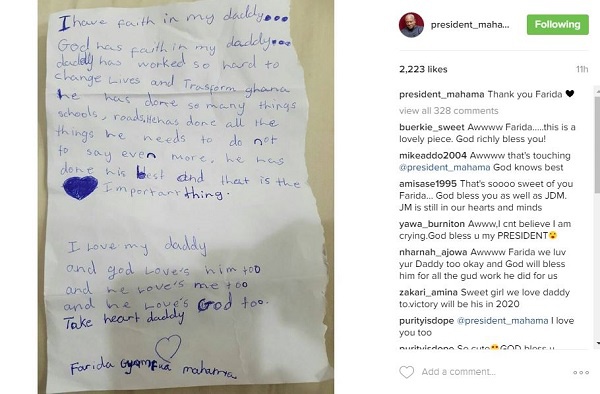 I have faith in my daddy...
God has faith in my daddy...
daddy has worked so hard to
change Lives and Trasform ghana
he has done so many things
schools, roads. He has done all the
things he needs to do not
to say even more, he has
done his best and that is the
Important thing.
I Love my daddy
and god Love's him too
and he Love's me too
and he Love's God too.
Take heart daddy
Farida Gyamfua mahama
president_maha...
Following
2,223 likes
11h
president_mahama Thank you Farida 🖤
view all 328 comments
buerkie_sweet Awwww Farida.....this is a
lovely piece. God richly bless you!
mikeaddo2004 Awwww that's touching
@president_mahama God knows best
amisase1995 That's soooo sweet of you
Farida... God bless you as well as JDM.
JM is still in our hearts and minds
yawa_burniton Aww,I cnt believe I am
crying.God bless u my PRESIDENT😢
nharnah_ajowa Awwww Farida we luv
yur Daddy too okay and God will bless
him for all the gud work he did for us
zakari_amina Sweet girl we love daddy
to.victory will be his in 2020
purityisdope @president_mahama I love
you too
purityisdope So cute😍GOD bless u
Add a comment...